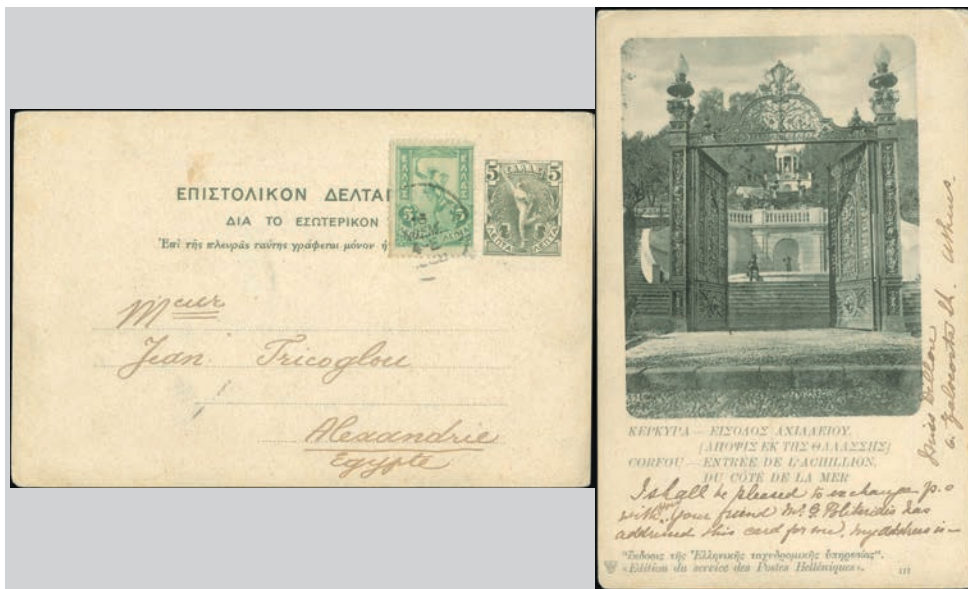 ΕΠΙΣΤΟΛΙΚΟΝ ΔΕΛΤΑΡ
ΔΙΑ ΤΟ ΕΣΩΤΕΡΙΚΟΝ
Ἐπὶ τῆς πλευρᾶς ταύτης γράφεται μόνον ἡ
ΕΛΛΑΣ
ΕΛΛΑΣ
5 5
5 ΕΛΛΑΣ 5
ΛΕΠΤΑ ΛΕΠΤΑ
Mceur
Jean Tricoglou
Alexandrie
Egypte
ΚΕΡΚΥΡΑ — ΕΙΣΟΔΟΣ ΑΧΙΛΛΕΙΟΥ.
[ΑΠΟΨΙΣ ΕΚ ΤΗΣ ΘΑΛΑΣΣΗΣ]
CORFOU — ENTRÉE DE L'ACHILLION,
DU CÔTÉ DE LA MER
I shall be pleased to exchange p.c
with you your friend Mr. G. Politaridis has
addressed this card for me. my address is—
Miss
Athens.
"Ἔκδοσις τῆς Ἑλληνικῆς ταχυδρομικῆς ὑπηρεσίας".
«Edition du service des Postes Helléniques».